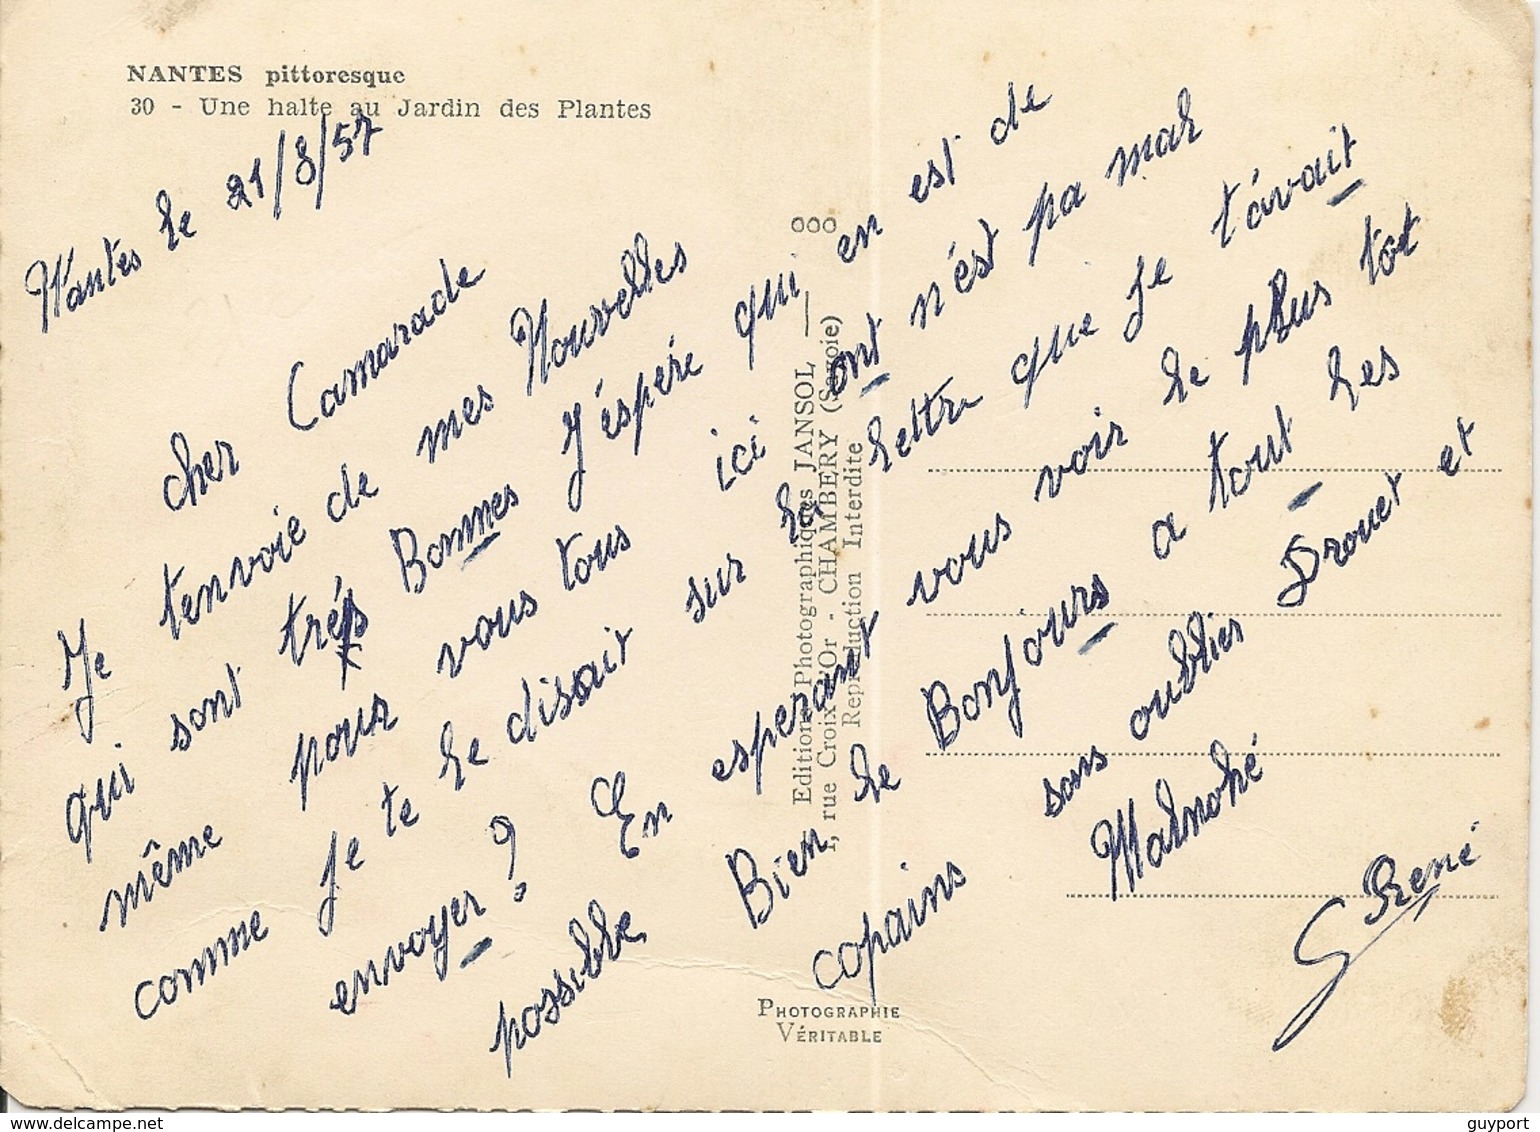 NANTES pittoresque
30 - Une halte au Jardin des Plantes
Nantes le 21/8/57
cher Camarade
Je tenvoie de mes Nouvelles
qui sont trés Bonnes J'éspére qui en est de
même pour vous tous ici ont n'ést pa mal
comme je te le disait sur la lettre que je t'avait
envoyer? En esperant vous voir le plus tot
possible Bien le Bonjours a tout les
copains sans oublier Drouet et
Malnohé
G René
ooo
Editions Photographiques JANSOL
1, rue Croix d'Or - CHAMBERY (Savoie)
Reproduction Interdite
PHOTOGRAPHIE
VÉRITABLE
delcampe.net
guyport